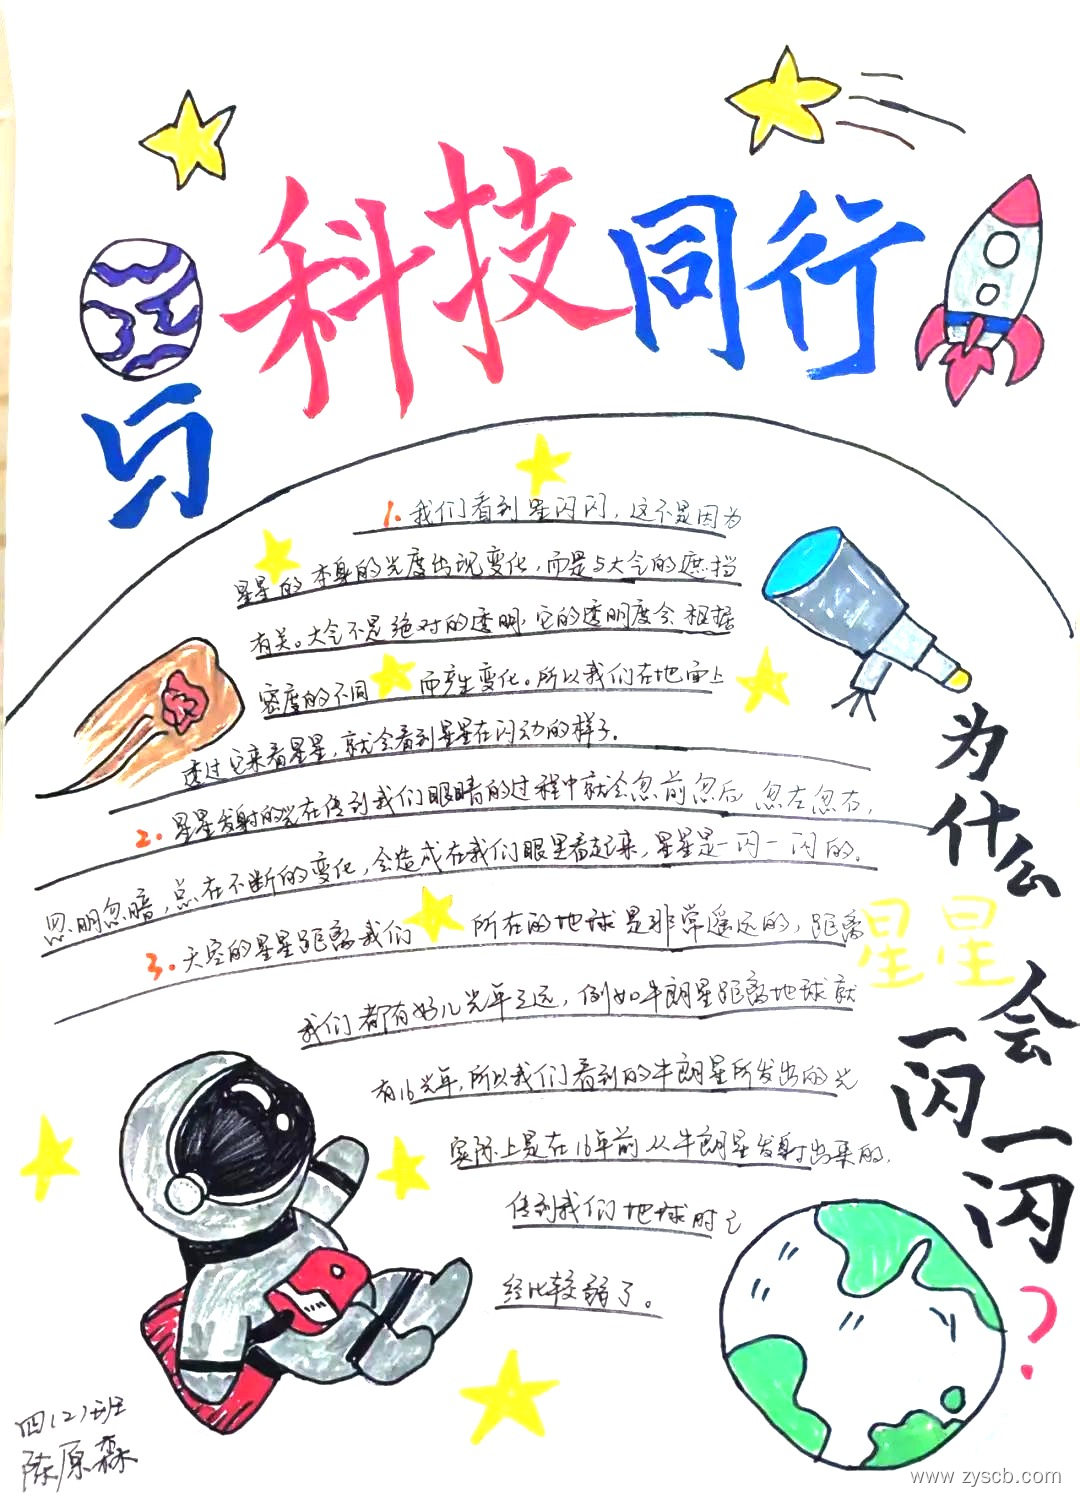 与科技同行
1.我们看到星闪闪，这不是因为
星星的本身的光度出现变化，而是与大气的遮挡
有关。大气不是绝对的透明，它的透明度会根据
密度的不同而产生变化。所以我们在地面上
透过它来看星星，就会看到星星在闪动的样子。
2.星星发射的光在传到我们眼睛的过程中就会忽前忽后忽左忽右，
忽明忽暗，总在不断的变化，会造成在我们眼里看起来，星星是一闪一闪的。
3.天空的星星距离我们所在的地球是非常遥远的，距离
我们都有好几光年之远，例如牛朗星距离地球就
有16光年，所以我们看到的牛朗星所发出的光
实际上是在16年前从牛朗星发射出来的，
传到我们地球时已
经比较弱了。
为什么
星星
会
一闪一闪？
四(2)班
陈原森
www.zyscb.com